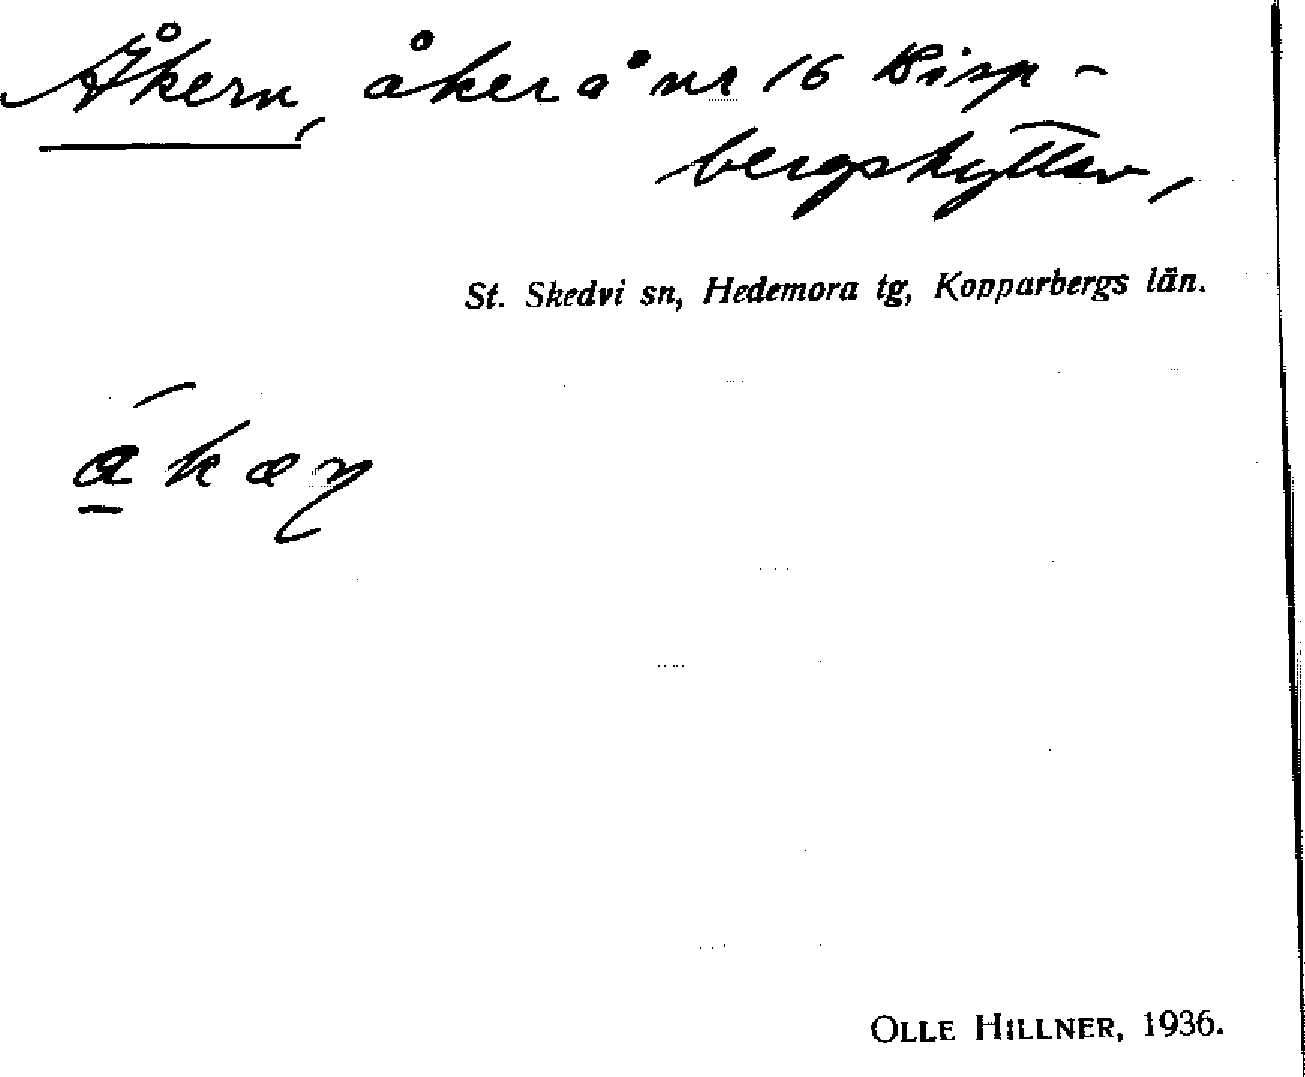 Åkern, åker å nr 16 Bisp-
bergshyttan,
St. Skedvi sn, Hedemora tg, Kopparbergs län.
OLLE HILLNER, 1936.